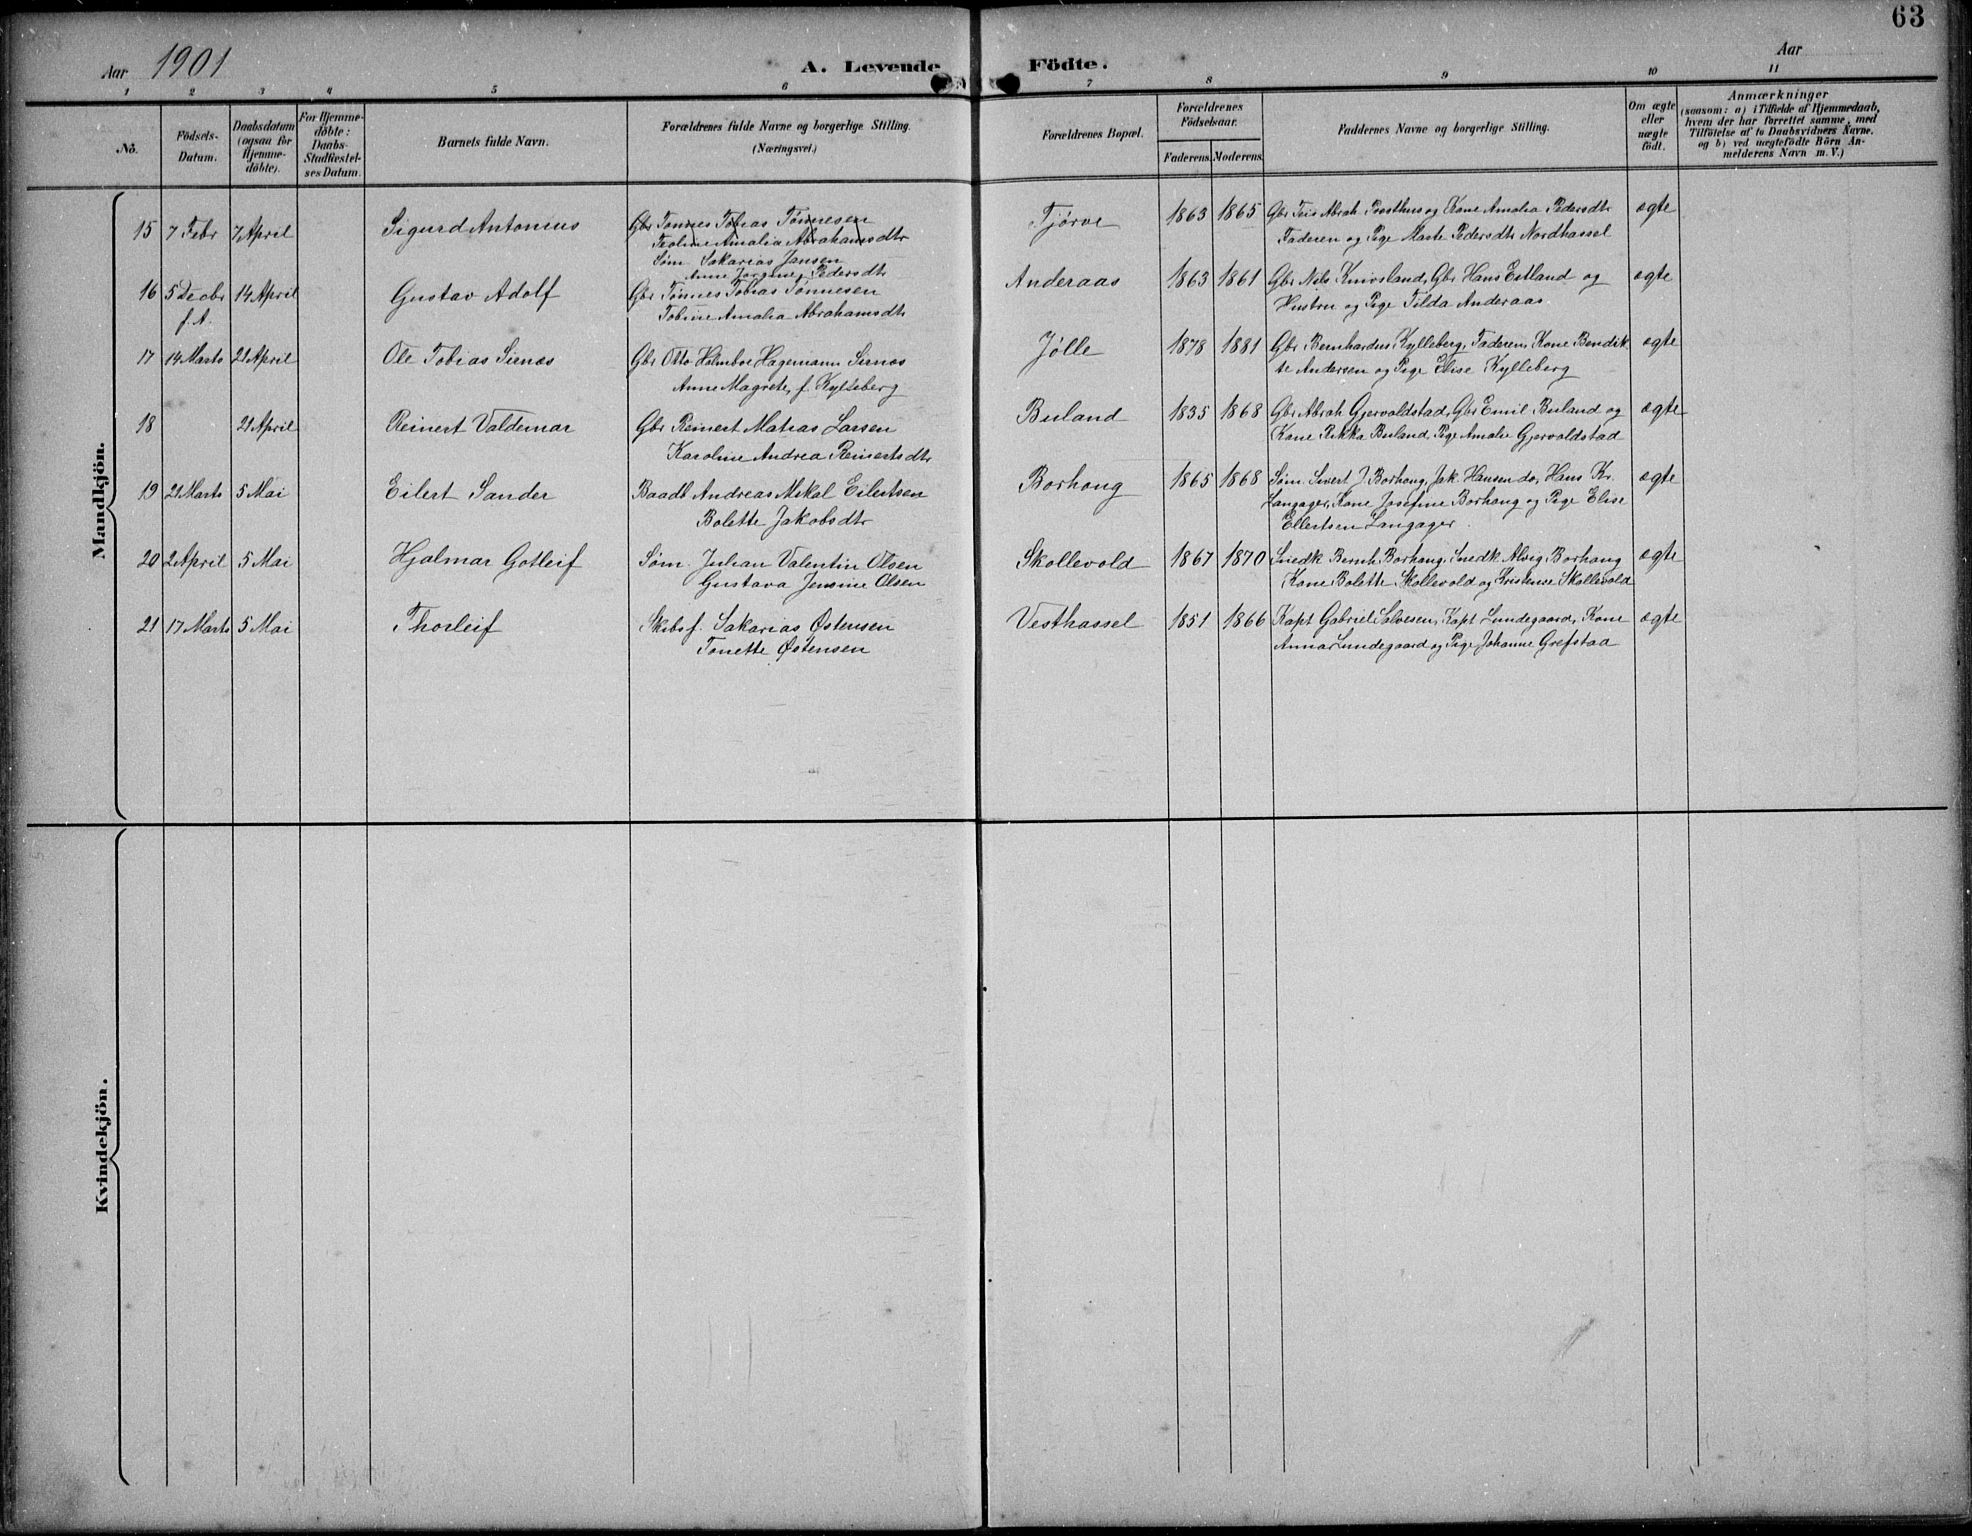 63
Aar 1901
A. Levende Födte.
Aar
1 2 3 4 5 6 7 8 9 10 11
No.
Födsels-
Datum.
Daabsdatum
(ogsaa for
Hjemme-
döbte).
For Hjemme-
döbte:
Daabs-
Stadfæstel-
ses Datum.
Barnets fulde Navn.
Forældrenes fulde Navne og borgerlige Stilling.
(Næringsvei.)
Forældrenes Bopæl.
Forældrenes
Födselsaar.
Faderens. Moderens.
Faddernes Navne og borgerlige Stilling.
Om ægte
eller
uægte
födt.
Anmærkninger
(saasom: a) i Tilfælde af Hjemmedaab,
hvem der har forrettet samme, med
Tilföielse af to Daabsvidners Navne.
og b) ved uægtefödte Börn An-
melderens Navn m. V.)
Mandkjön.
15 7 Febr 7 April Sigurd Antonius Gbr Tønnes Tobias Tønnesen Tjørve 1863 1865 Gbr Teis Abrah Prosthus og Kone Amalia Pedersdtr ægte
Teoline Amalia Abrahamsdtr Faderen og Pige Marte Pedersdtr Nordhassel
Søm Sakarias Jansen
Anne Jørgine Pedersdtr
16 5 Decbr 14 April Gustav Adolf Gbr Tønnes Tobias Tønnesen Anderaas 1863 1861 Gbr Nils Knivsland, Gbr Hans Eitland og ægte
f. A. Tobine Amalia Abrahamsdtr Hustru og Pige Tilda Anderaas
17 14 Marts 21 April Ole Tobias Sienæs Gbr Otto Holmboe Hagemann Sienæs Jølle 1878 1881 Gbr Bernhardus Kylleberg, Faderen, Kone Bendik- ægte
Anne Magrete, f. Kylleberg te Andersen og Pige Elise Kylleberg
18 21 April Reinert Valdemar Gbr Reinert Matias Larsen Buland 1835 1868 Gbr Abrah Gjervoldstad, Gbr Emil Buland og ægte
Karoline Andrea Reinertsdtr Kone Rikka Buland, Pige Amalie Gjervoldstad
19 21 Marts 5 Mai Eilert Sander Baadb Andreas Mikal Eilertsen Borhaug 1865 1868 Søm Sivert J. Borhaug, Jak. Hansen do, Hans Kr. ægte
Bolette Jakobsdtr Langager, Kone Josefine Borhaug og Pige Elise
Ellertsen Langager
20 2 April 5 Mai Hjalmar Gotleif Søm Julian Valentin Olsen Skollevold 1867 1870 Snedk Bernh Borhaug, Snedk Alvig Borhaug ægte
Gustava Jensine Olsen Kone Bolette Skollevold og Kristense Skollevold
21 17 Marts 5 Mai Thorleif Skibsf. Sakarias Østensen Vesthassel 1851 1866 Kapt Gabriel Salvesen, Kapt Lundegaard, Kone ægte
Tonette Østensen Anna Lundegaard og Pige Johanne Grefstad
Kvindekjön.